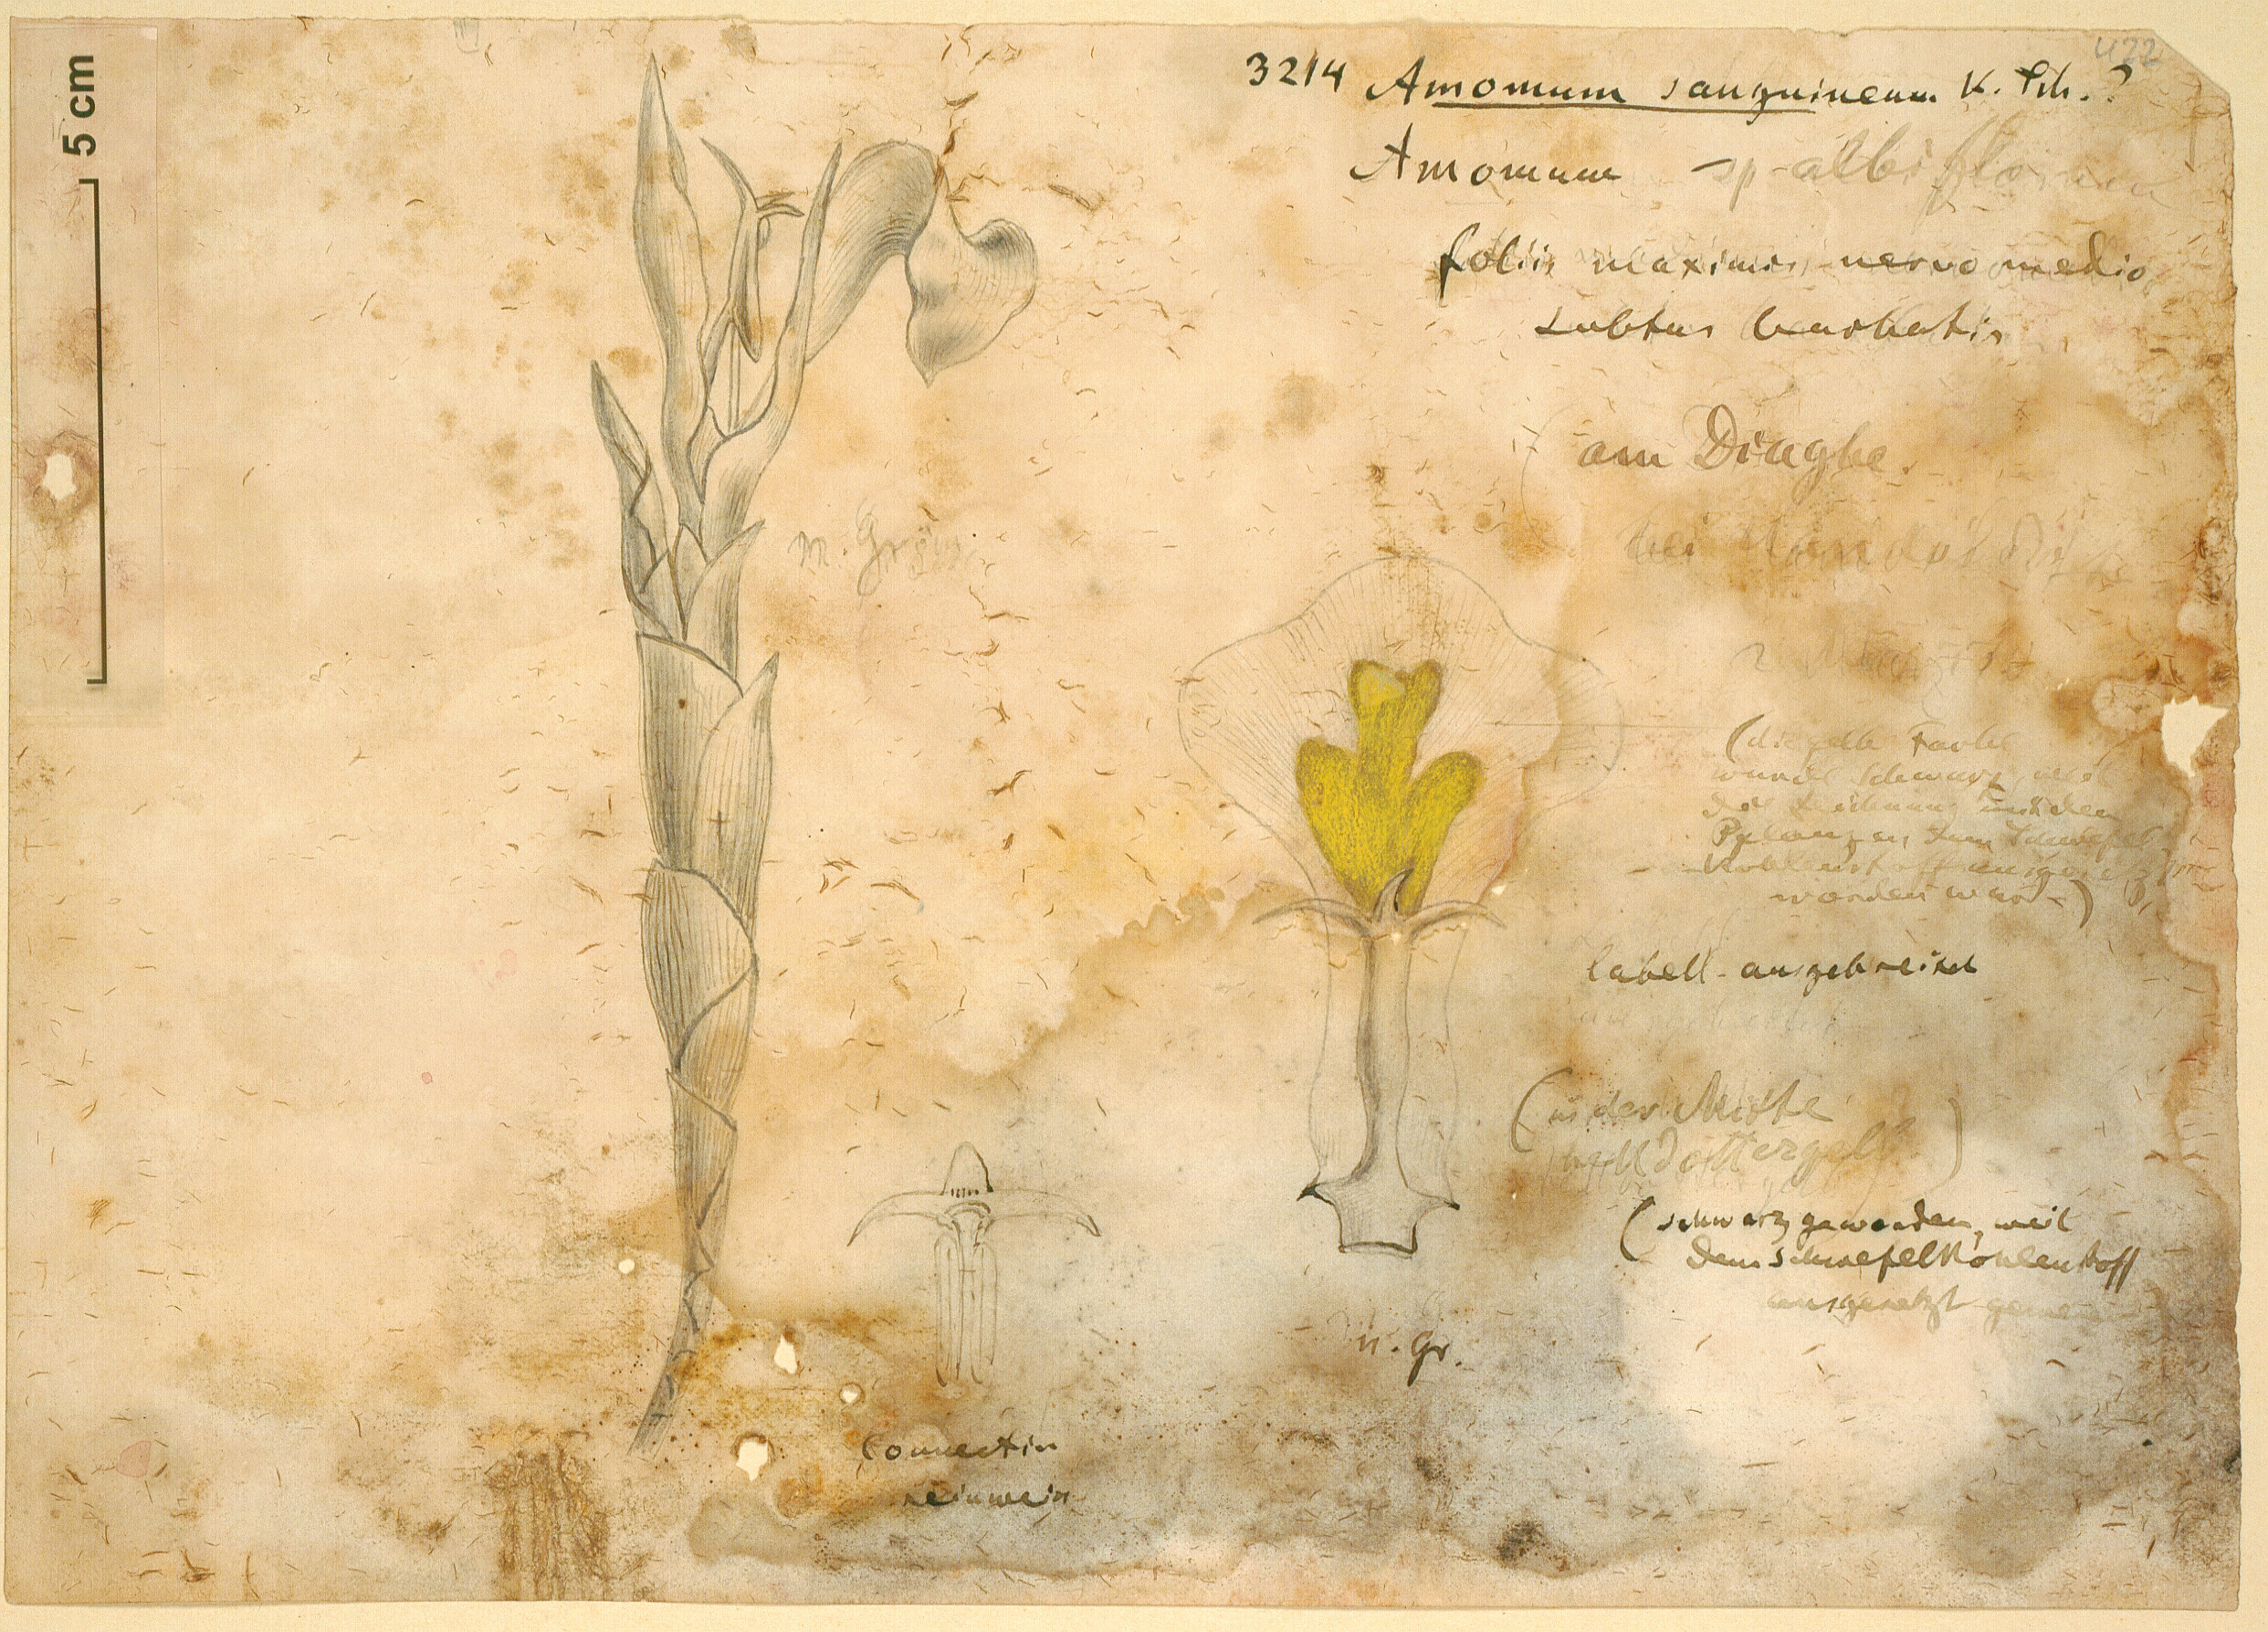 5 cm
422
3214 Amomum sanguineum K. Sch.?
Amomum sp. albiflorum
foliis maximis nervo medio
subtus barbatis
(am Diagbe.
bei
n. Gr.
(die gelbe Farbe
wurde schwarz, weil
die Zeichnung mit den
Pflanzen dem Schwefel-
kohlenstoff ausgesetzt
worden war.)
labell. ausgebreitet
(in der Mitte
dottergelb)
(schwarz geworden, weil
dem Schwefelkohlenstoff
ausgesetzt gewe
n. gr.
Connectiv
reinweiss